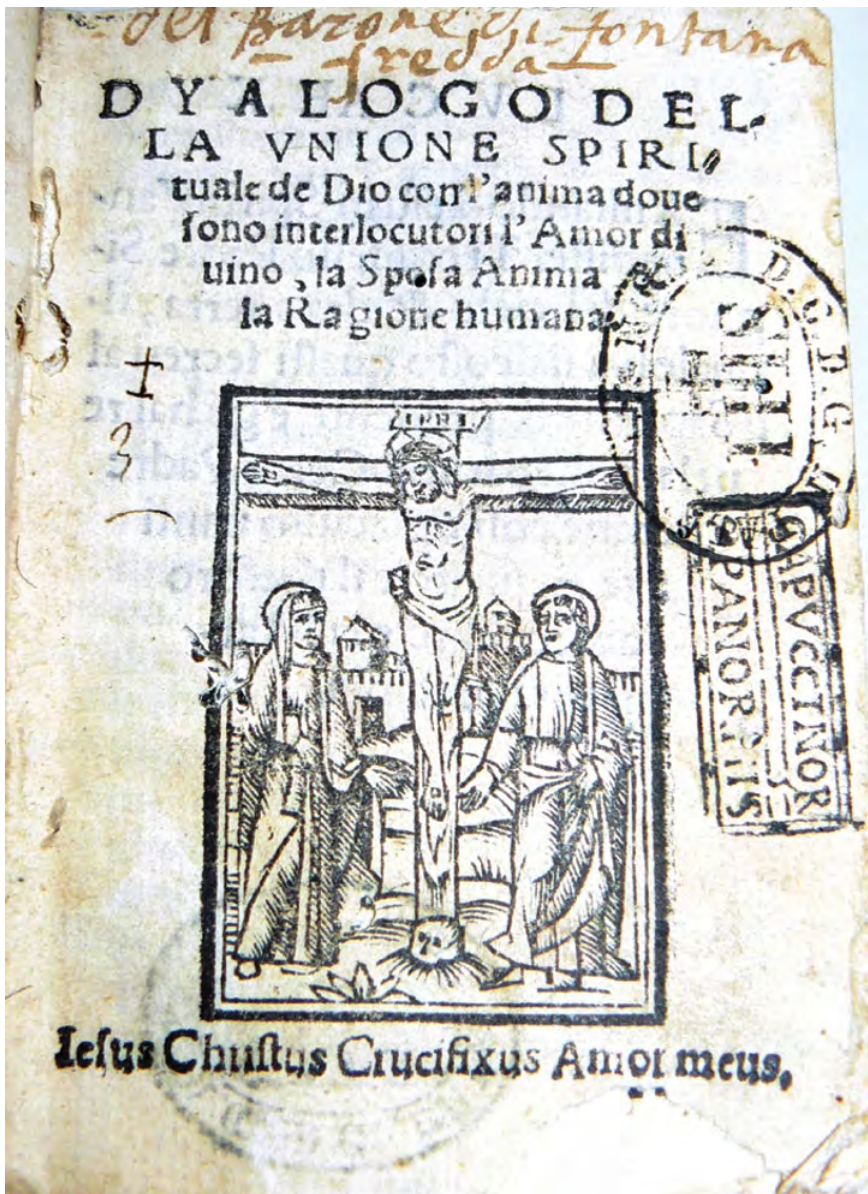 del Barone di fontana
fredda
DYALOGO DEL-
LA VNIONE SPIRI-
tuale de Dio con l'anima doue
sono interlocutori l'Amor di
uino, la Sposa Anima
la Ragione humana
3
INRI
CAPVCCINOR
PANORMIS
Iesus Christus Crucifixus Amor meus.